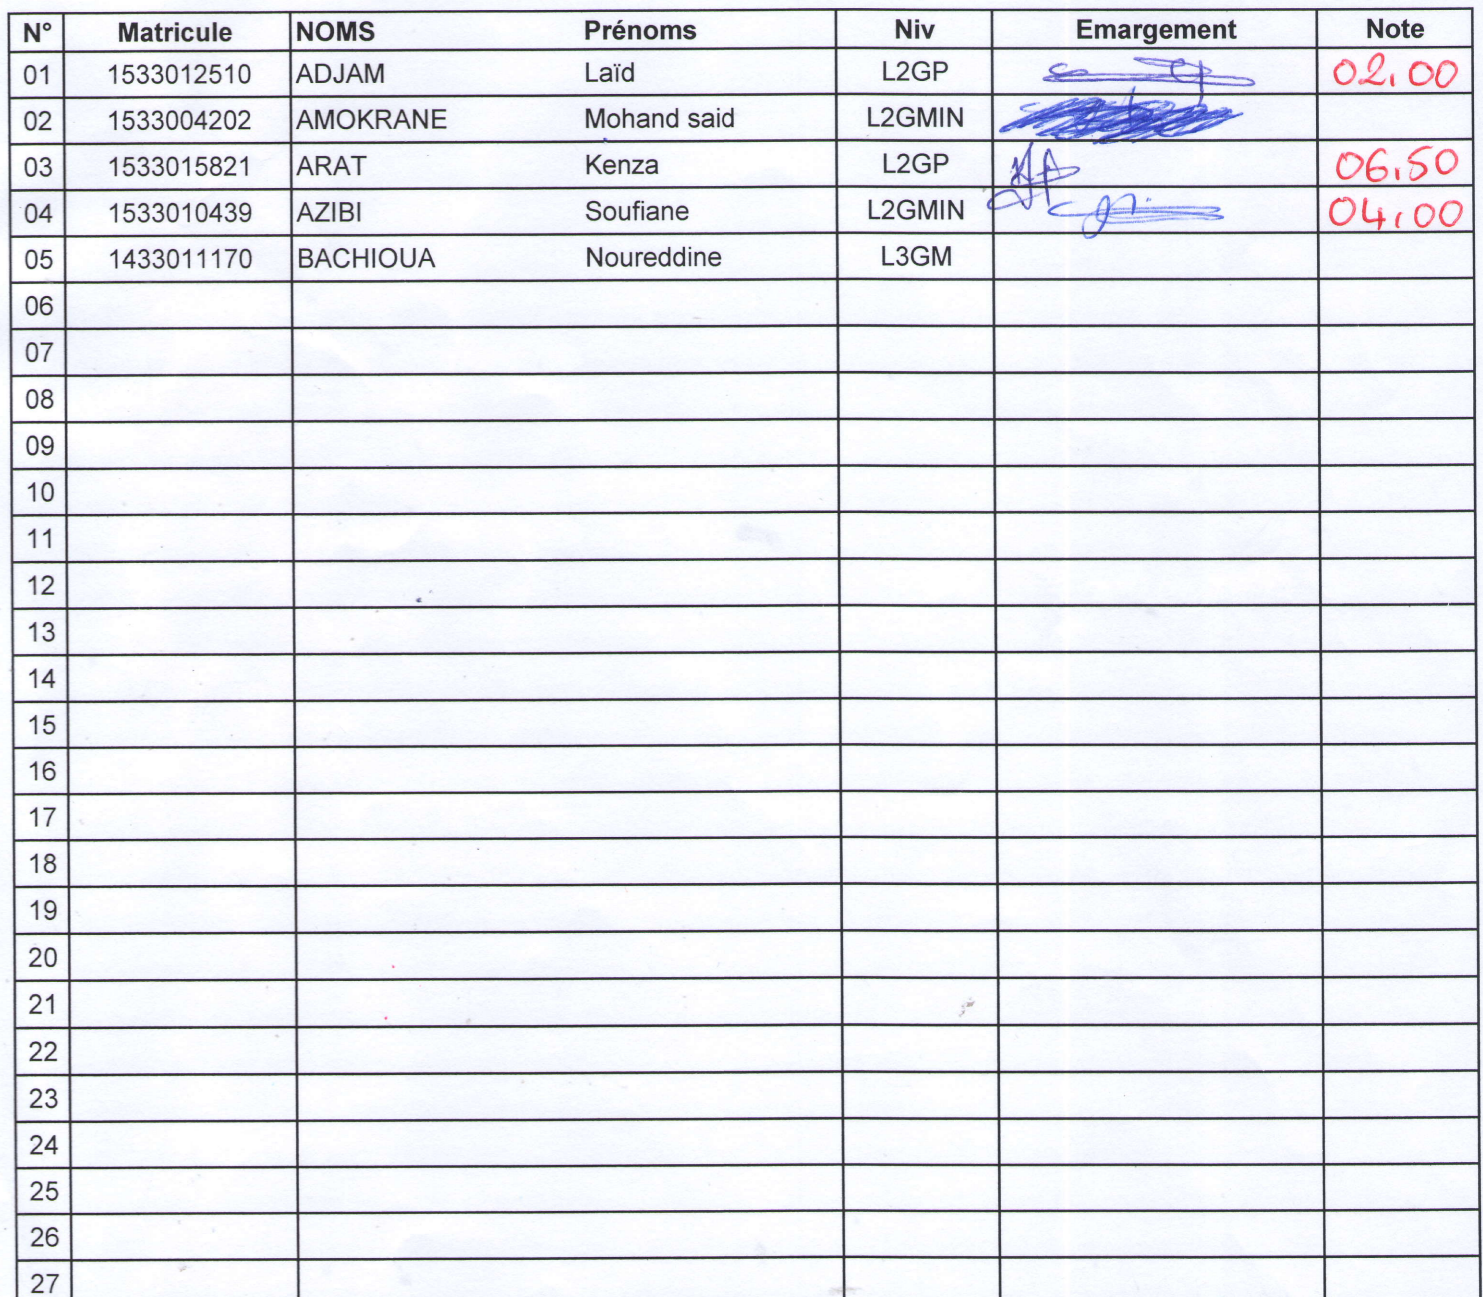 N° Matricule NOMS Prénoms Niv Emargement Note
01 1533012510 ADJAM Laïd L2GP 02,00
02 1533004202 AMOKRANE Mohand said L2GMIN
03 1533015821 ARAT Kenza L2GP 06,50
04 1533010439 AZIBI Soufiane L2GMIN 04,00
05 1433011170 BACHIOUA Noureddine L3GM
06
07
08
09
10
11
12
13
14
15
16
17
18
19
20
21
22
23
24
25
26
27